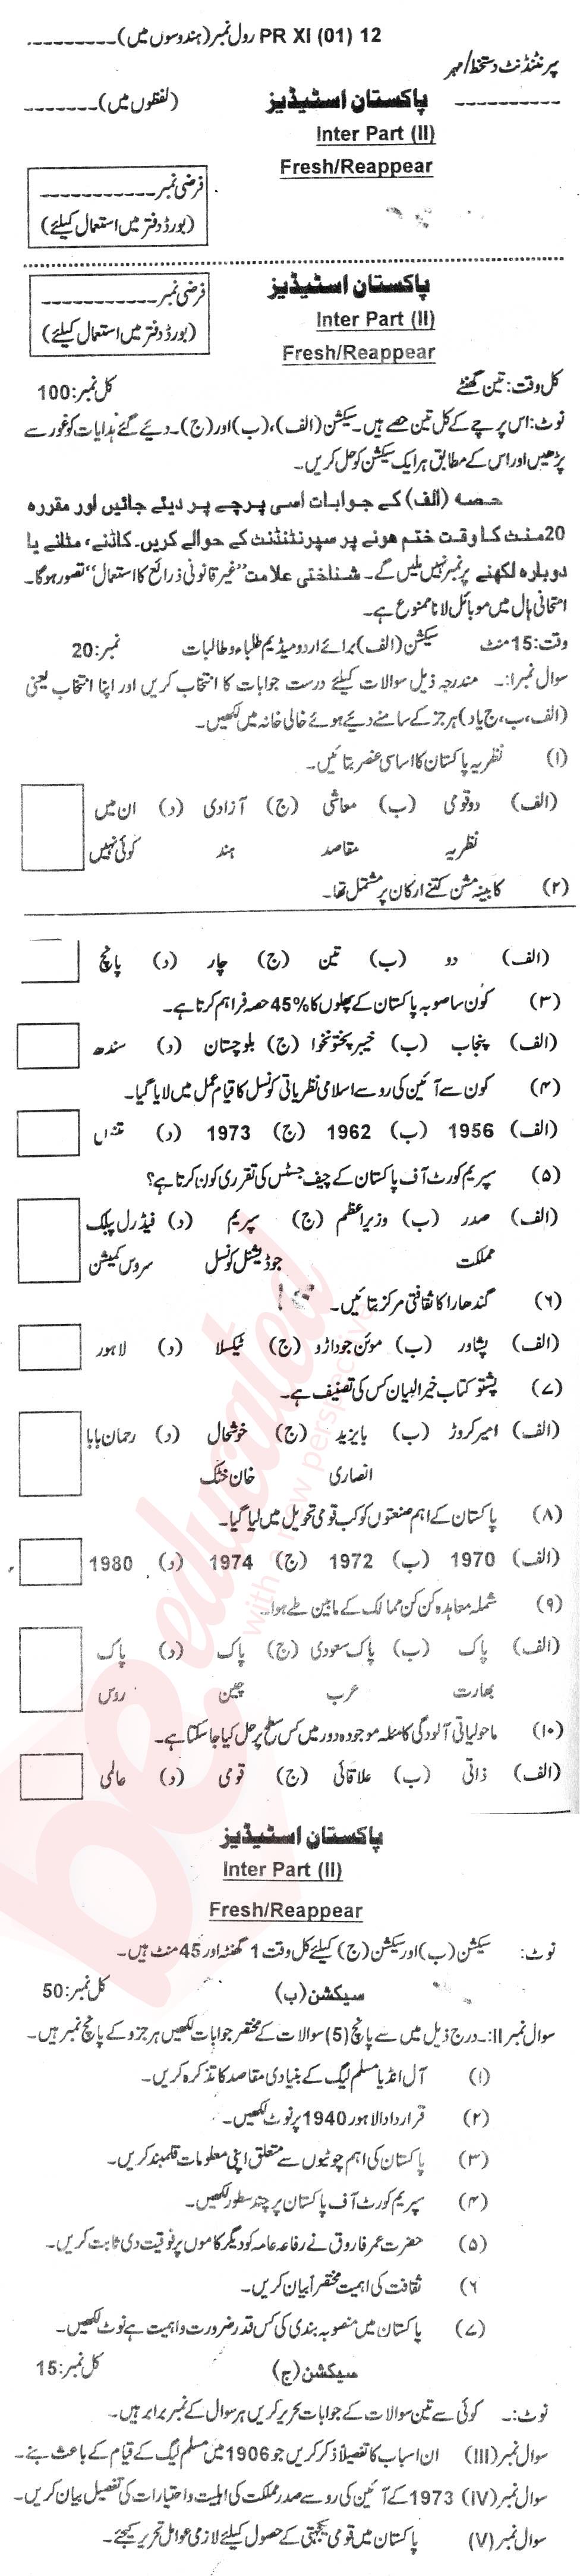 PR XI (01) 12 رول نمبر (ہندوسوں میں) ـــــــــــ
سپرنٹنڈنٹ دستخط/مہر
پاکستان اسٹیڈیز (لفظوں میں) ـــــــــــ
Inter Part (II)
Fresh/Reappear
فرضی نمبر ـــــــــــ
(بورڈ دفتر میں استعمال کیلئے)
پاکستان اسٹیڈیز
Inter Part (II)
Fresh/Reappear
فرضی نمبر ـــــــــــ
(بورڈ دفتر میں استعمال کیلئے)
کل وقت: تین گھنٹے کل نمبر: 100
نوٹ: اس پرچے کے کل تین حصے ہیں۔ سیکشن (الف)، (ب) اور (ج)۔ دیئے گئے ہدایات کو غور سے
پڑھیں اور اس کے مطابق ہر ایک سیکشن کو حل کریں۔
حصہ (الف) کے جوابات اسی پرچے پر دیئے جائیں اور مقررہ
20 منٹ کا وقت ختم ہونے پر سپرنٹنڈنٹ کے حوالے کریں۔ کاٹنے، مٹانے یا
دوبارہ لکھنے پر نمبر نہیں ملیں گے۔ شناختی علامت "غیر قانونی ذرائع کا استعمال" تصور ہوگا۔
امتحانی ہال میں موبائل لانا ممنوع ہے۔
وقت: 15 منٹ سیکشن (الف) برائے اردو میڈیم طلباء و طالبات نمبر: 20
سوال نمبر ا:۔ مندرجہ ذیل سوالات کیلئے درست جوابات کا انتخاب کریں اور اپنا انتخاب یعنی
(الف، ب، ج یا د) ہر جز کے سامنے دیئے ہوئے خالی خانہ میں لکھیں۔
(۱) نظریہ پاکستان کا اساسی عنصر بتائیں۔
(الف) دو قومی (ب) معاشی (ج) آزادی (د) ان میں
نظریہ مقاصد ہند کوئی نہیں
(۲) کابینہ مشن کتنے ارکان پر مشتمل تھا۔
(الف) دو (ب) تین (ج) چار (د) پانچ
(۳) کون سا صوبہ پاکستان کے پھلوں کا 45% حصہ فراہم کرتا ہے۔
(الف) پنجاب (ب) خیبر پختونخوا (ج) بلوچستان (د) سندھ
(۴) کون سے آئین کی رو سے اسلامی نظریاتی کونسل کا قیام عمل میں لایا گیا۔
(الف) 1956 (ب) 1962 (ج) 1973 (د) تینوں
(۵) سپریم کورٹ آف پاکستان کے چیف جسٹس کی تقرری کون کرتا ہے؟
(الف) صدر (ب) وزیراعظم (ج) سپریم (د) فیڈرل پبلک
مملکت جوڈیشنل کونسل سروس کمیشن
(۶) گندھارا کا ثقافتی مرکز بتائیں۔
(الف) پشاور (ب) موئن جوداڑو (ج) ٹیکسلا (د) لاہور
(۷) پشتو کتاب خیر البیان کس کی تصنیف ہے۔
(الف) امیر کروڑ (ب) بایزید (ج) خوشحال (د) رحمان بابا
انصاری خان خٹک
(۸) پاکستان کے اہم صنعتوں کو کب قومی تحویل میں لیا گیا۔
(الف) 1970 (ب) 1972 (ج) 1974 (د) 1980
(۹) شملہ معاہدہ کن کن ممالک کے مابین طے ہوا۔
(الف) پاک (ب) پاک سعودی (ج) پاک (د) پاک
بھارت عرب چین روس
(۱۰) ماحولیاتی آلودگی کا مسئلہ موجودہ دور میں کس سطح پر حل کیا جا سکتا ہے۔
(الف) ذاتی (ب) علاقائی (ج) قومی (د) عالمی
پاکستان اسٹیڈیز
Inter Part (II)
Fresh/Reappear
نوٹ: سیکشن (ب) اور سیکشن (ج) کیلئے کل وقت 1 گھنٹہ اور 45 منٹ ہیں۔
سیکشن (ب) کل نمبر: 50
سوال نمبر II:۔ درج ذیل میں سے پانچ (5) سوالات کے مختصر جوابات لکھیں ہر جزو کے پانچ نمبر ہیں۔
(۱) آل انڈیا مسلم لیگ کے بنیادی مقاصد کا تذکرہ کریں۔
(۲) قرارداد لاہور 1940 پر نوٹ لکھیں۔
(۳) پاکستان کی اہم چوٹیوں سے متعلق اپنی معلومات قلمبند کریں۔
(۴) سپریم کورٹ آف پاکستان پر چند سطور لکھیں۔
(۵) حضرت عمر فاروق نے رفاعہ عامہ کو دیگر کاموں پر فوقیت دی ثابت کریں۔
(۶ ثقافت کی اہمیت مختصراً بیان کریں۔
(۷) پاکستان میں منصوبہ بندی کی کس قدر ضرورت و اہمیت ہے نوٹ لکھیں۔
سیکشن (ج) کل نمبر: 15
نوٹ:۔ کوئی سے تین سوالات کے جوابات تحریر کریں ہر سوال کے نمبر برابر ہیں۔
سوال نمبر (III) ان اسباب کا تفصیلاً ذکر کریں جو 1906 میں مسلم لیگ کے قیام کے باعث بنے۔
سوال نمبر (IV) 1973 کے آئین کی رو سے صدر مملکت کی اہلیت و اختیارات کی تفصیل بیان کریں۔
سوال نمبر (V) پاکستان میں قومی یکجہتی کے حصول کیلئے لازمی عوامل تحریر کیجئے۔
be educated
with a new perspective